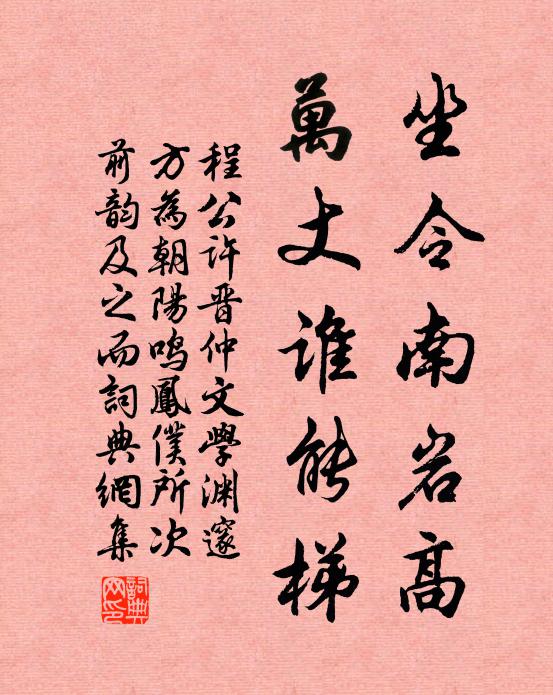 坐令南岩高
萬丈誰能梯
程公許晋仲文學渊邃
方為朝陽鳴鳳僕所次
前韵及之而詞典網集
詞典網印